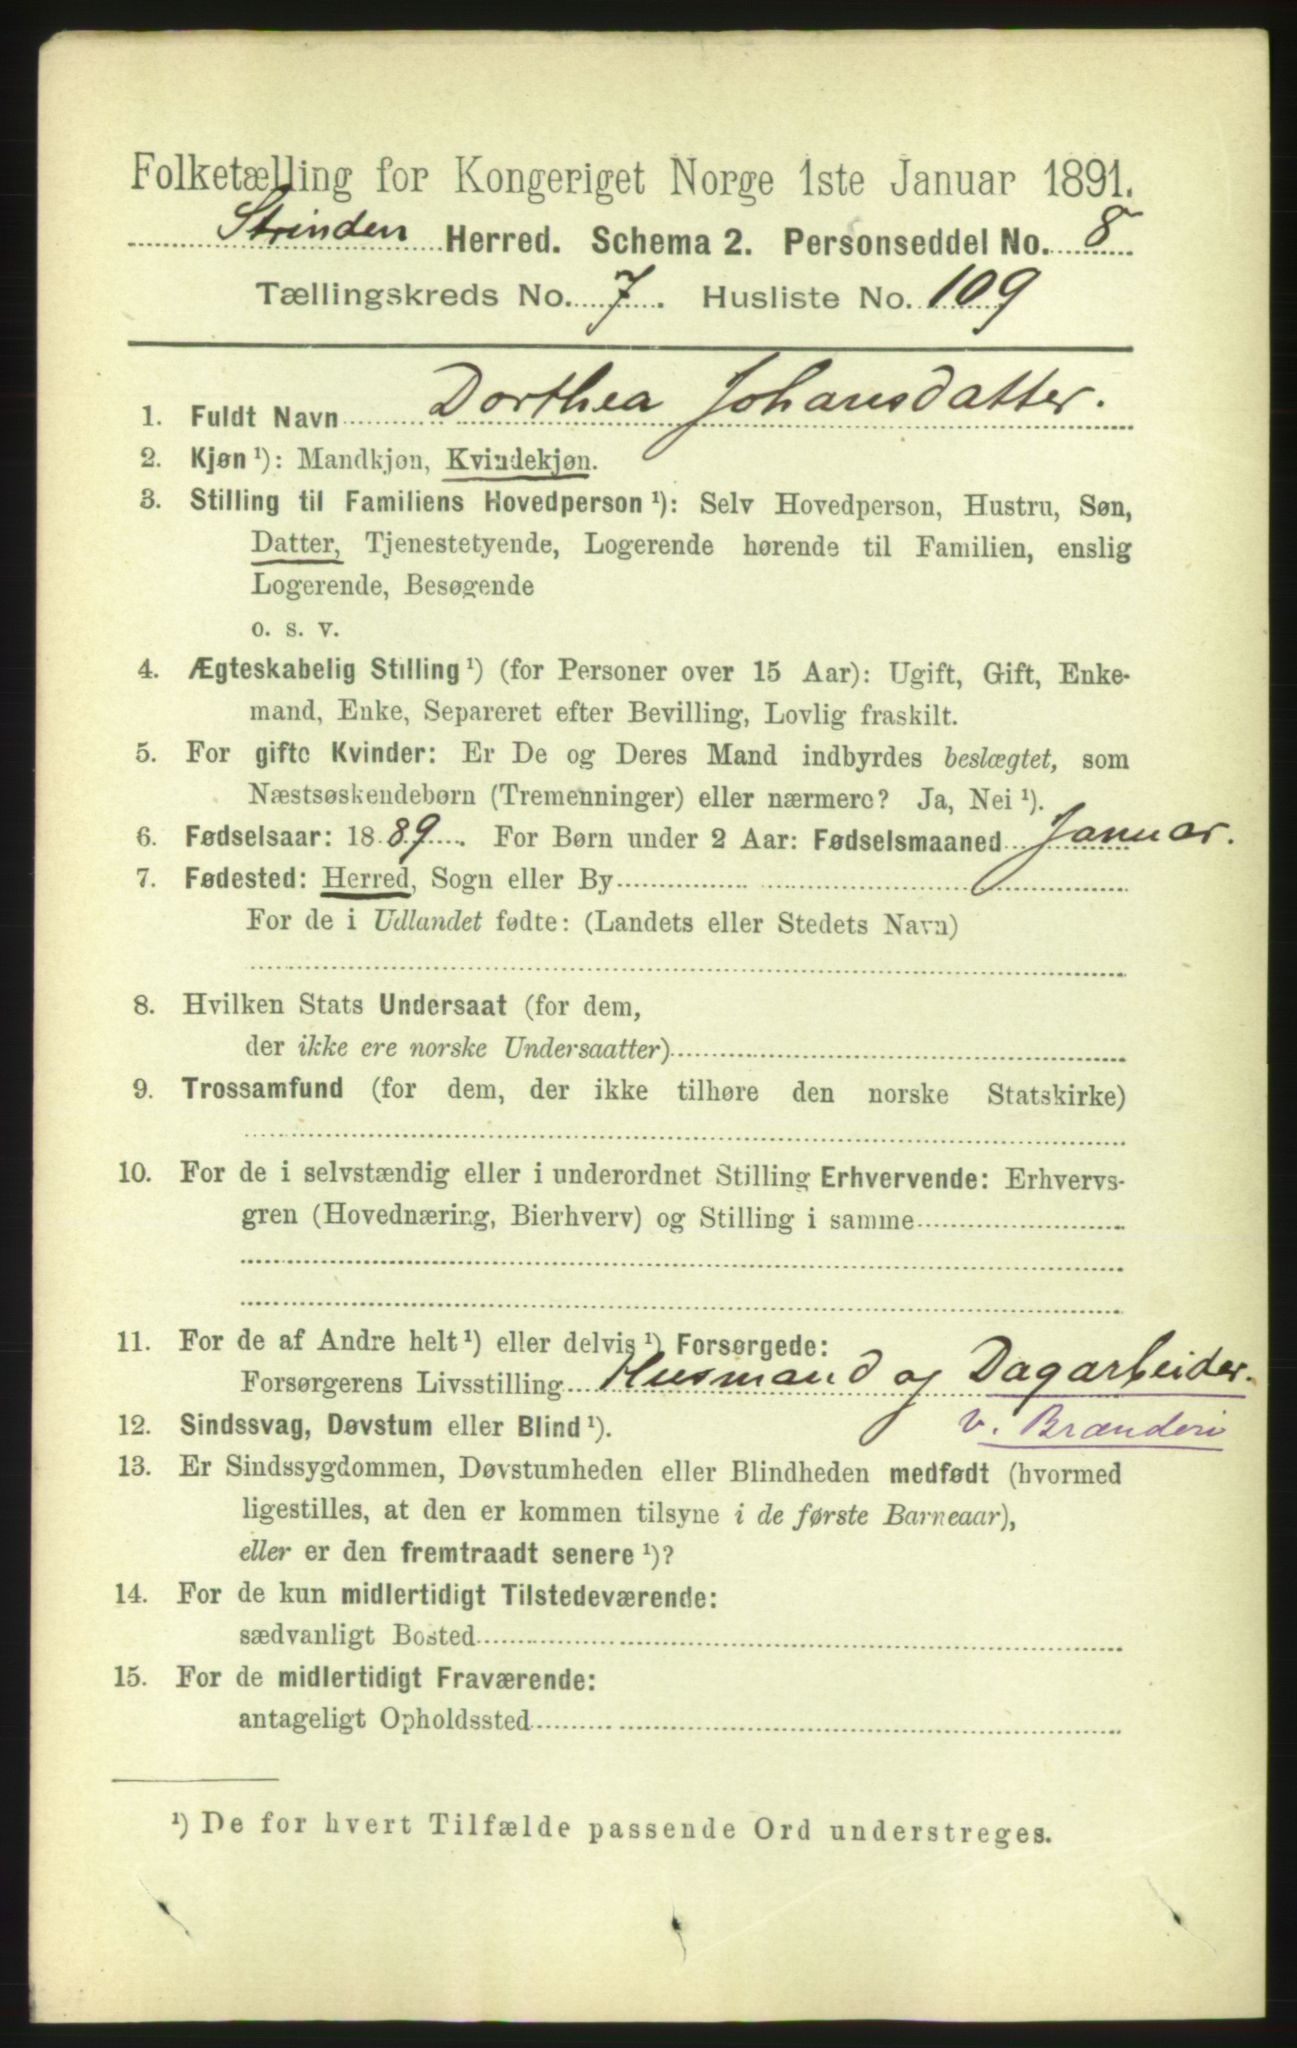 Folketælling for Kongeriget Norge 1ste Januar 1891.
Strinden Herred. Schema 2. Personseddel No. 8
Tællingskreds No. 7. Husliste No. 109
1. Fuldt Navn Dorthea Johansdatter.
2. Kjøn ¹): Mandkjøn, Kvindekjøn.
3. Stilling til Familiens Hovedperson ¹): Selv Hovedperson, Hustru, Søn,
Datter, Tjenestetyende, Logerende hørende til Familien, enslig
Logerende, Besøgende
o. s. v.
4. Ægteskabelig Stilling ¹) (for Personer over 15 Aar): Ugift, Gift, Enke-
mand, Enke, Separeret efter Bevilling, Lovlig fraskilt.
5. For gifte Kvinder: Er De og Deres Mand indbyrdes beslægtet, som
Næstsøskendebørn (Tremenninger) eller nærmere? Ja, Nei ¹).
6. Fødselsaar: 1889. For Børn under 2 Aar: Fødselsmaaned Januar.
7. Fødested: Herred, Sogn eller By
For de i Udlandet fødte: (Landets eller Stedets Navn)
8. Hvilken Stats Undersaat (for dem,
der ikke ere norske Undersaatter)
9. Trossamfund (for dem, der ikke tilhøre den norske Statskirke)
10. For de i selvstændig eller i underordnet Stilling Erhvervende: Erhvervs-
gren (Hovednæring, Bierhverv) og Stilling i samme
11. For de af Andre helt ¹) eller delvis ¹) Forsørgede:
Forsørgerens Livsstilling Husmand og Dagarbeider.
v. Brænderi
12. Sindssvag, Døvstum eller Blind ¹).
13. Er Sindssygdommen, Døvstumheden eller Blindheden medfødt (hvormed
ligestilles, at den er kommen tilsyne i de første Barneaar),
eller er den fremtraadt senere ¹)?
14. For de kun midlertidigt Tilstedeværende:
sædvanligt Bosted
15. For de midlertidigt Fraværende:
antageligt Opholdssted
¹) De for hvert Tilfælde passende Ord understreges.